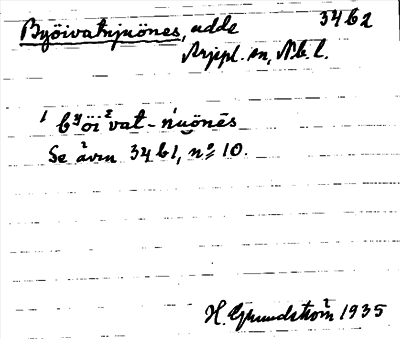 Byöivatnjuönes, udde 34 b 2
Arjepl. sn, Nb. l.
ˈbyöiˈvat-ńuönēs
Se även 34 b 1, nº 10.
H. Grundström 1935